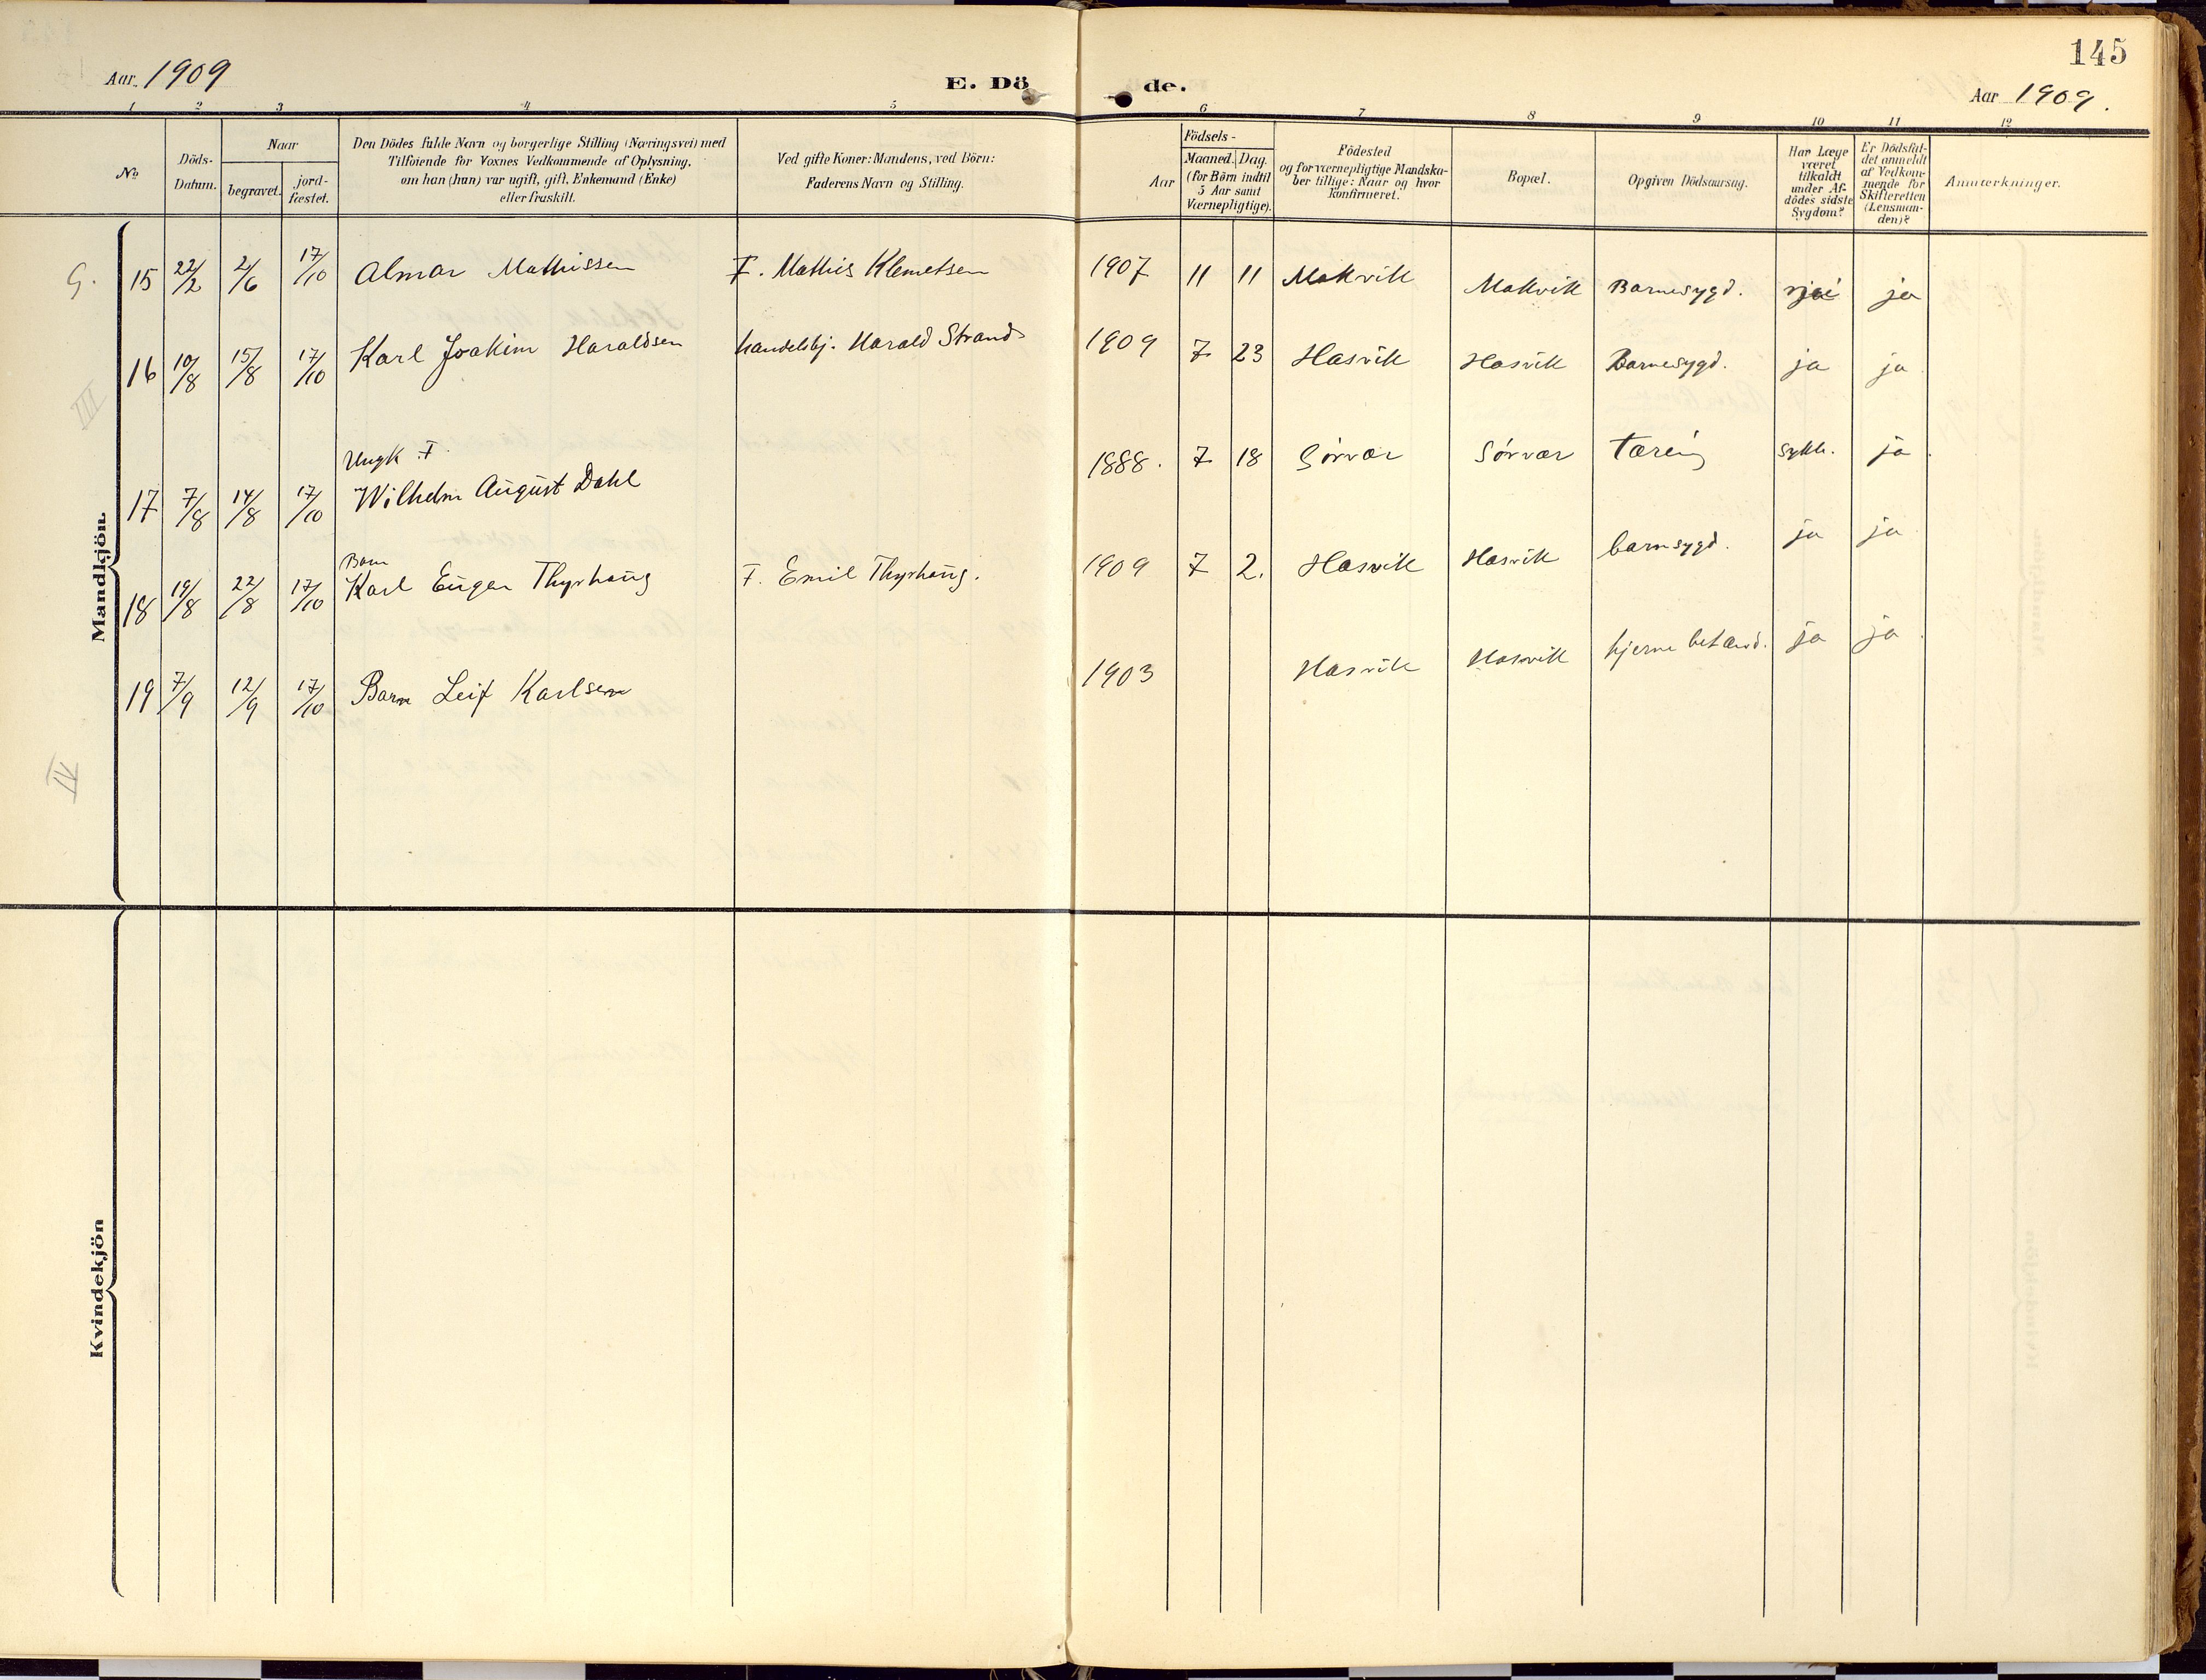 145
Aar 1909
E. Dö de.
Aar 1909.
1 2 3 4 5 6 7 8 9 10 11 12
No
Döds-Datum.
Naar
begravet.
jord-fæstet.
Den Dödes fulde Navn og borgerlige Stilling (Næringsvei) med
Tilföiende for Voxnes Vedkommende af Oplysning,
om han (hun) var ugift, gift, Enkemand (Enke)
eller fraskilt.
Ved gifte Koner: Mandens, ved Börn:
Faderens Navn og Stilling.
Födsels-
Aar
Maaned. Dag.
(for Börn indtil
5 Aar samt
Værnepligtige).
Födested
og for værnepligtige Mandska-
ber tillige: Naar og hvor
konfirmeret.
Bopæl.
Opgiven Dödsaarsag.
Har Læge
været
tilkaldt
under Af-
dödes sidste
Sygdom?
Er Dödsfal-
det anmeldt
af Vedkom-
mende for
Skifteretten
(Lensman-
den)?
Anmærkninger.
Mandkjön.
G.
15 22/2 2/6 17/10 Almar Mathissen F. Mathis Klemetsen 1907 11 11 Makvik Makvik Barnesygd. ja
III
16 10/8 15/8 17/10 Karl Joakim Haraldsen handelsbj. Harald Strand 1909 7 23 Hasvik Hasvik Barnesygd. ja ja
Ungk. F.
17 7/8 14/8 17/10 Wilhelm August Dahl 1888. 7 18 Sörvær Sörvær Tæring sykh. ja
Barn
18 19/8 22/8 17/10 Karl Eugen Thyrhaug F. Emil Thyrhaug. 1909 7 2. Hasvik Hasvik barnsygd. ja ja
19 7/9 12/9 17/10 Barn Leif Karlsen 1903 Hasvik Hasvik hjerne betænd. ja ja
IV
Kvindekjön